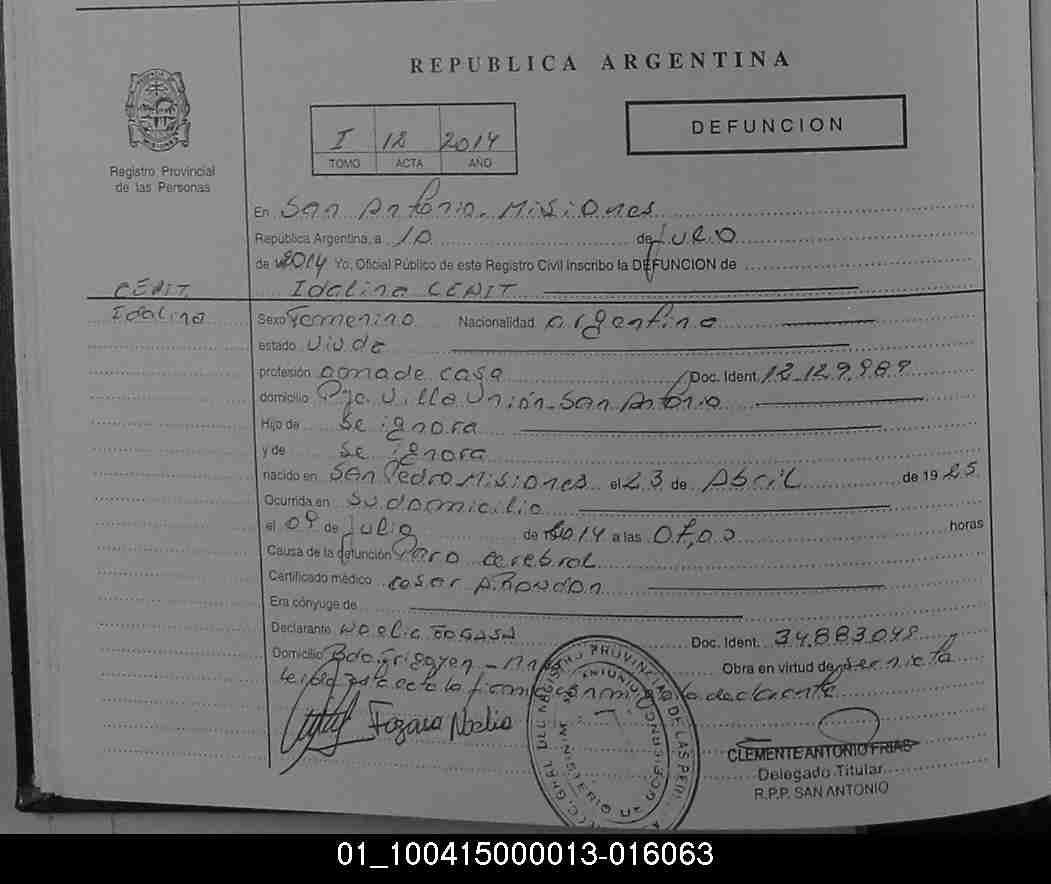 REPUBLICA ARGENTINA
I 12 2014
TOMO ACTA AÑO
DEFUNCION
Registro Provincial
de las Personas
En San Antonio. Misiones
República Argentina, a 10 de Julio
de 2014 Yo, Oficial Público de este Registro Civil inscribo la DEFUNCION de
CENIT Idalina CENIT
Idalina Sexo Femenino Nacionalidad argentina
estado viuda
profesión ama de casa Doc. Ident. 12.129.989
domicilio Pje. Villa Unión-San Antonio
Hijo de se ignora
y de se ignora
nacido en San Pedro Misiones el 23 de Abril de 1925
Ocurrida en su domicilio
el 09 de Julio de 2014 a las horas
Causa de la defunción Paro cerebral
Certificado médico cesar A.
Era cónyuge de
Declarante Noelia FOGASA Doc. Ident. 34.883.048
Domicilio Bdo. Irigoyen - Mnes Obra en virtud de ser nieta
leida esta acta la firma conmigo la declarante
Fogasa Noelia
CLEMENTE ANTONIO FRIAS
Delegado Titular
R.P.P. SAN ANTONIO
01_100415000013-016063